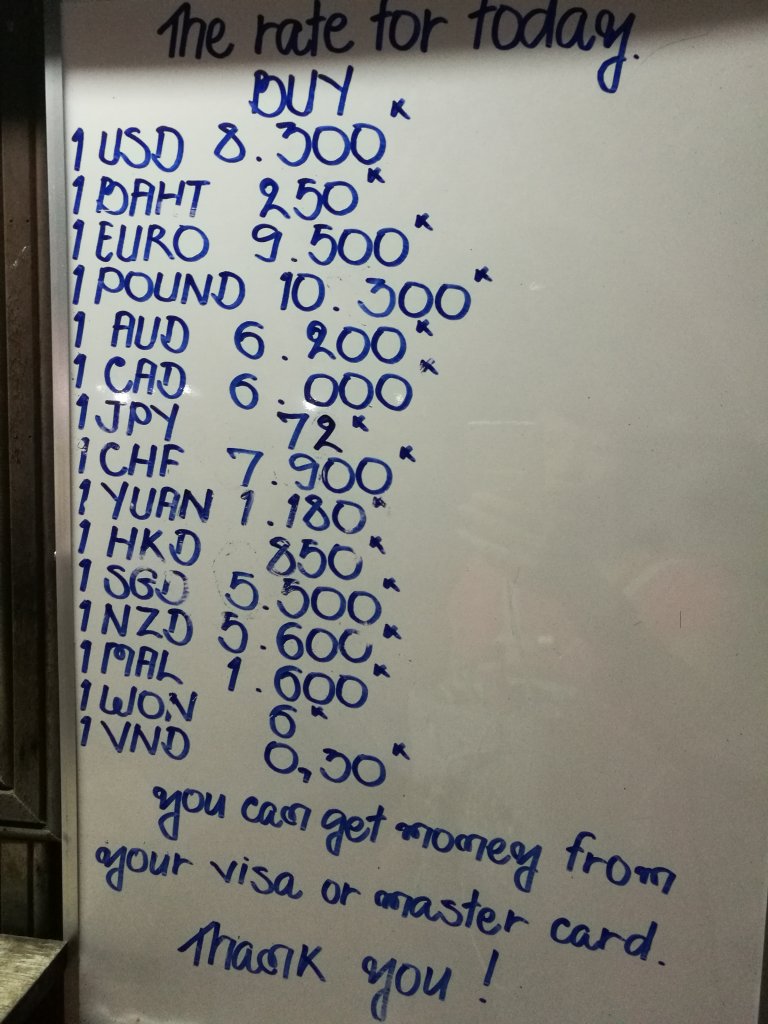 The rate for today.
BUY
1 USD 8.300 K
1 BAHT 250 K
1 EURO 9.500 K
1 POUND 10.300 K
1 AUD 6.200 K
1 CAD 6.000 K
1 JPY 72 K
1 CHF 7.900 K
1 YUAN 1.180 K
1 HKD 850 K
1 SGD 5.500 K
1 NZD 5.600 K
1 MAL 1.600 K
1 WON 6 K
1 VND 0,30 K
you can get money from
your visa or master card.
Thank you !